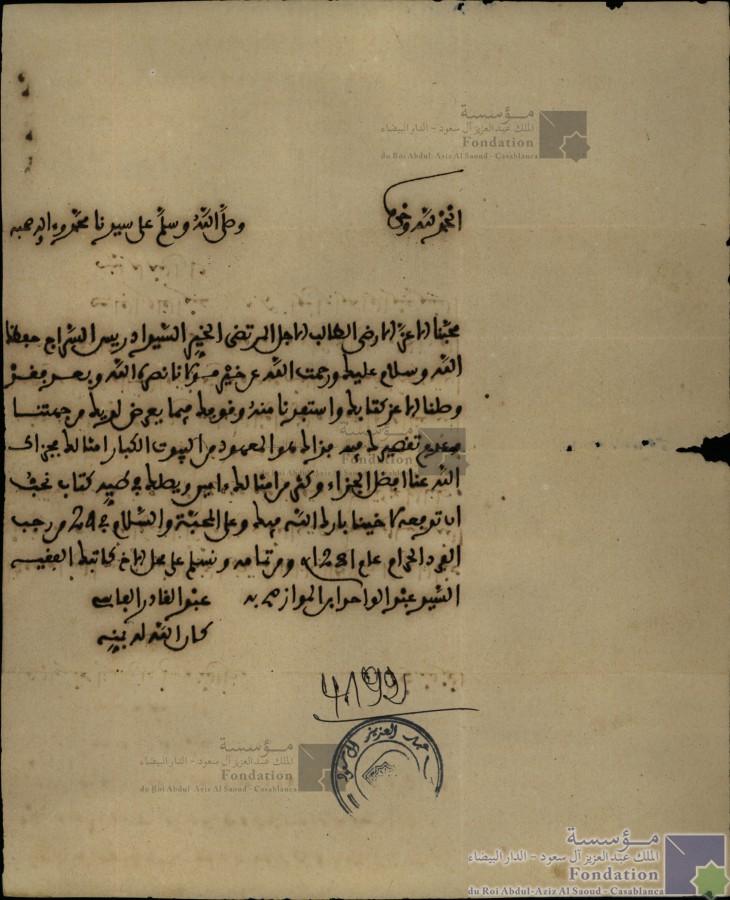 مؤسسة
الملك عبد العزيز آل سعود - الدار البيضاء
Fondation
du Roi Abdul-Aziz Al Saoud - Casablanca
الحمد لله وحده
وصلى الله وسلم على سيدنا محمد وءاله وصحبه
محبنا الاعز الارضى الطالب الاجل المرتضى الخير السيد ادريس السراج حفظك
الله وسلام عليك ورحمت الله عن خير مولانا نصره الله وبعد
وطلنا الاعز كتابك واستفدنا منه وقوفك فيما يعرض لديك من جهتنا
وعدم تقصيرك فيه جزاك هو المعهود من البيوت الكبار امثالك فجزاك
الله عنا افضل الجزاء وكثر من امثالك ءامين ويصلك طيه كتاب نحب
ان توجهه لاخينا بارك الله فيك وعلى المحبة والسلام في 24 من رجب
الفرد الحرام عام 1281 ومن تمامه ونسلم على محل الاخ كاتبك الفقيه
السيد عبد الواحد ابن المواز
عبد القادر الفاسي
كان الله له بمنه
4199
عبد العزيز آل سعود
مؤسسة
الملك عبد العزيز آل سعود - الدار البيضاء
Fondation
du Roi Abdul-Aziz Al Saoud - Casablanca
مؤسسة
الملك عبد العزيز آل سعود - الدار البيضاء
Fondation
du Roi Abdul-Aziz Al Saoud - Casablanca